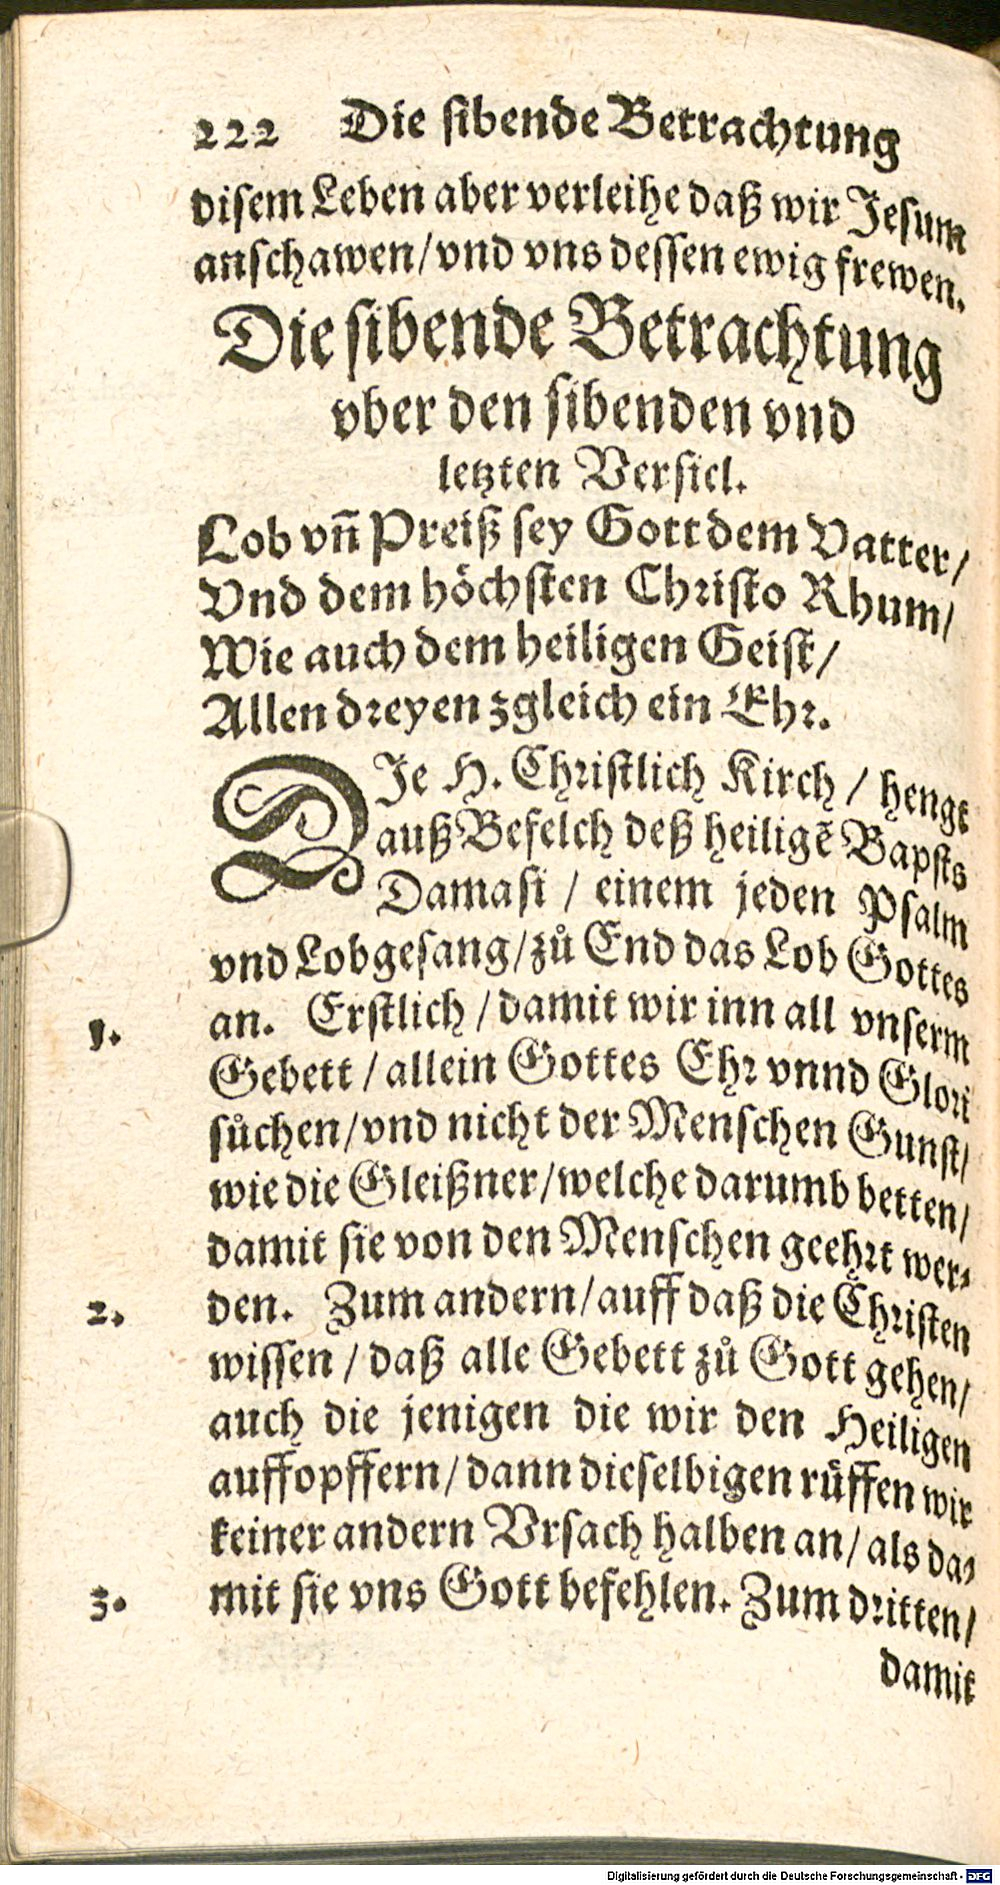 222 Die sibende Betrachtung
disem Leben aber verleihe daß wir Jesum
anschawen/vnd vns dessen ewig frewen.
Die sibende Betrachtung
vber den sibenden vnd
letzten Versicl.
Lob vn̄ Preiß sey Gott dem Vatter/
Vnd dem höchsten Christo Rhum/
Wie auch dem heiligen Geist/
Allen dreyen zgleich ein Ehr.
DJe H. Christlich Kirch / hengt
auß Befelch deß heiligē Bapsts
Damasi / einem jeden Psalm
vnd Lobgesang/zů End das Lob Gottes
1. an. Erstlich / damit wir inn all vnserm
Gebett / allein Gottes Ehr vnnd Glori
sůchen/vnd nicht der Menschen Gunst/
wie die Gleißner/welche darumb betten/
damit sie von den Menschen geehrt wer-
2. den. Zum andern/auff daß die Christen
wissen / daß alle Gebett zů Gott gehen/
auch die jenigen die wir den Heiligen
auffopffern/dann dieselbigen rüffen wir
keiner andern Vrsach halben an/ als da-
3. mit sie vns Gott befehlen. Zum dritten/
damit
Digitalisierung gefördert durch die Deutsche Forschungsgemeinschaft - DFG